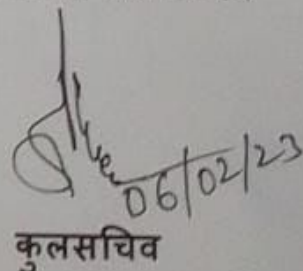 06/02/23
कुलसचिव